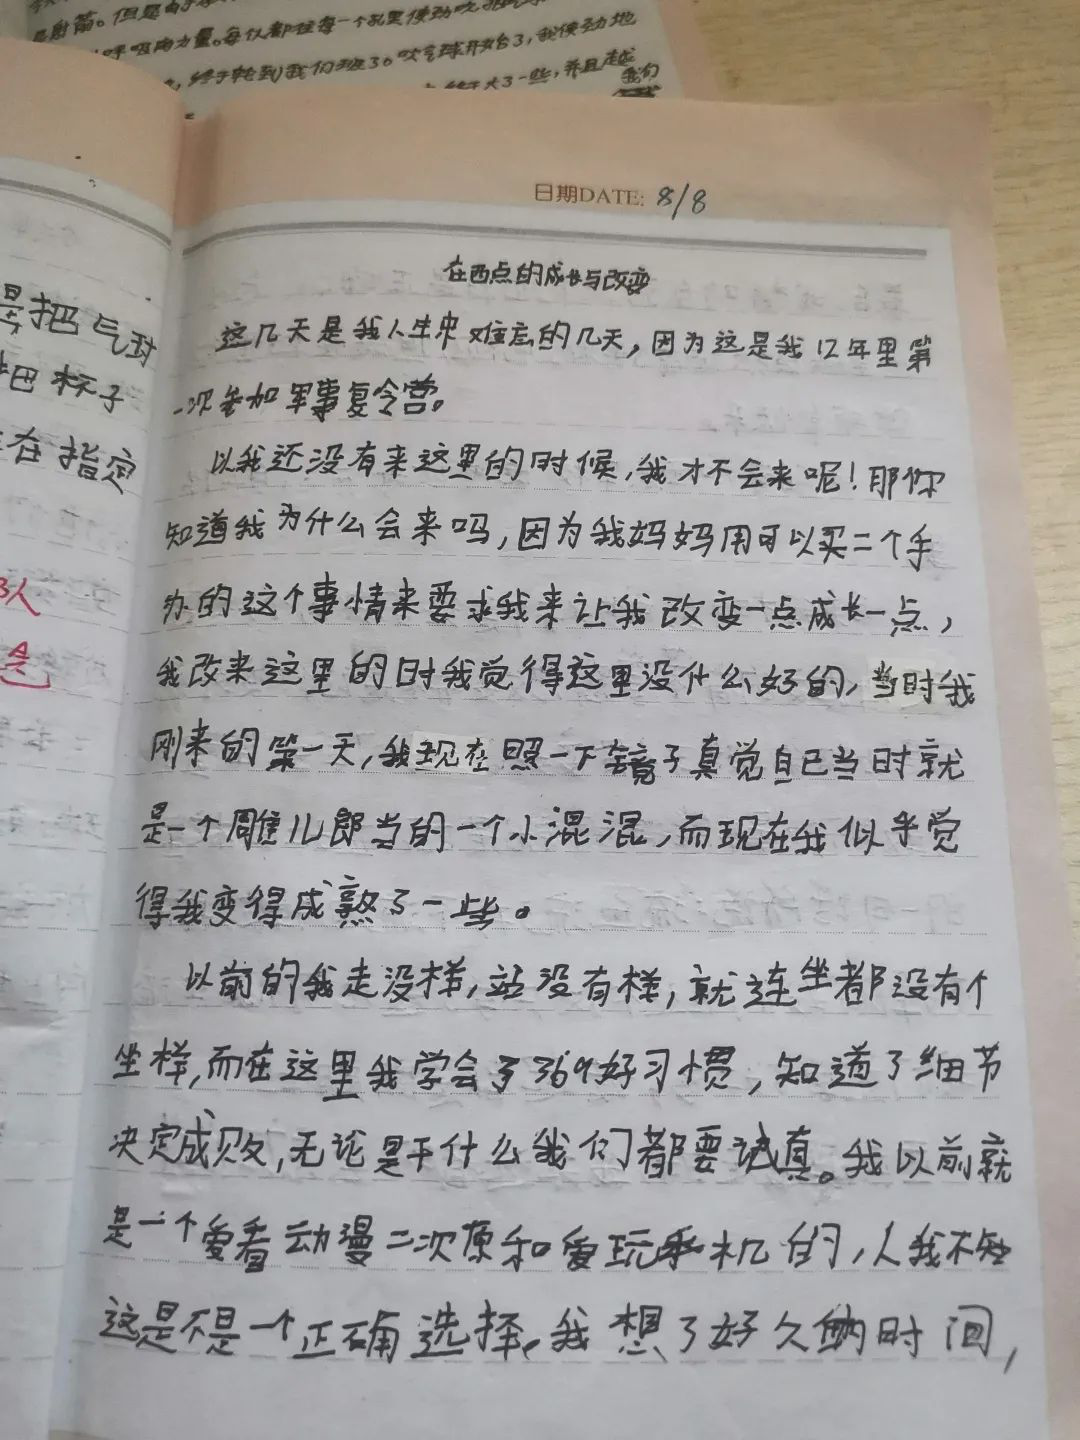 是射箭。但是由于
呼吸肉力量。每次都在每一个孔里使劲吹
终于轮到我们班了。吹气球开始了,我使劲地
终于大了一些,并且越
我们
是把气球
把杯子
在指定
人
日期DATE: 8/8
在西点的成长与改变
这几天是我人生中难忘的几天,因为这是我12年里第
一次参加军事夏令营。
以我还没有来这里的时候,我才不会来呢!那你
知道我为什么会来吗,因为我妈妈用可以买二个手
办的这个事情来要求我来让我改变一点成长一点,
我改来这里的时我觉得这里没什么好的,当时我
刚来的第一天,我现在照一下镜子真觉自已当时就
是一个雕儿郎当的一个小混混,而现在我似乎觉
得我变得成熟了一些。
以前的我走没样,站没有样,就连坐都没有个
坐样,而在这里我学会了369好习惯,知道了细节
决定成败,无论是干什么我们都要认真。我以前就
是一个爱看动漫二次原和爱玩手机的,人我不知
这是不是一个正确选择。我想了好久的时间,